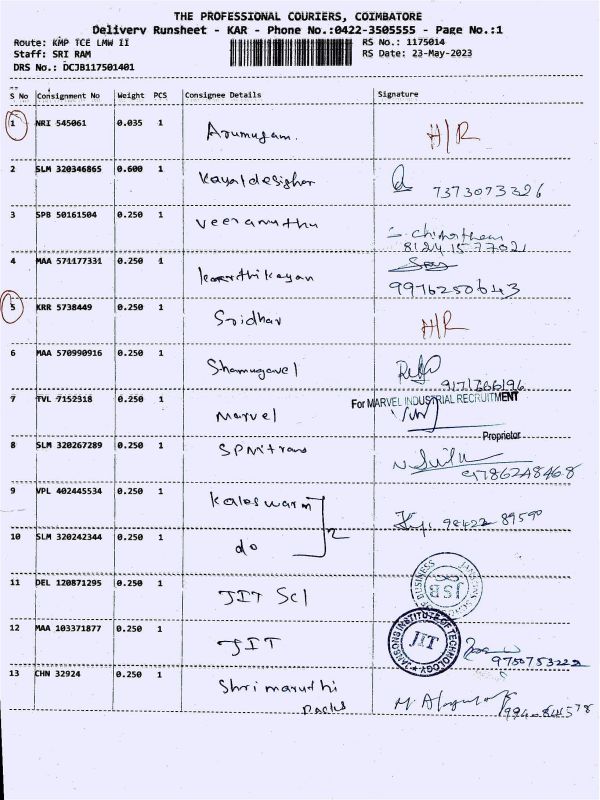 THE PROFESSIONAL COURIERS, COIMBATORE
Delivery Runsheet - KAR - Phone No.:0422-3505555 - Page No.:1
Route: KMP TCE LMW II
RS No.: 1175014
Staff: SRI RAM
RS Date: 23-May-2023
DRS No.: DCJB117501401
S No Consignment No Weight PCS Consignee Details Signature
1 NRI 545061 0.035 1 Arumugam. H/R
2 SLM 320346865 0.600 1 Kayaldesigher 7373073326
3 SPB 50161504 0.250 1 Veeramuthu
8124157702,
4 MAA 571177331 0.250 1 Karthikayan
9976250643
5 KRR 5738449 0.250 1 Sridhar H/R
6 MAA 570990916 0.250 1 Shamugavel
9171766196
7 TVL 7152318 0.250 1 Marvel
For MARVEL INDUSTRIAL RECRUITMENT
Proprietor
8 SLM 320267289 0.250 1 SPMitrans
9786248468
9 VPL 402445534 0.250 1 Kaleswarm
98422 89590
10 SLM 320242344 0.250 1 do 2
11 DEL 120871295 0.250 1 JIT Scl
JSB
BUSINESS
12 MAA 103371877 0.250 1 JIT
JANSONS INSTITUTE OF TECHNOLOGY
JIT
9750753222
13 CHN 32924 0.250 1 Shri maruthi
Packs